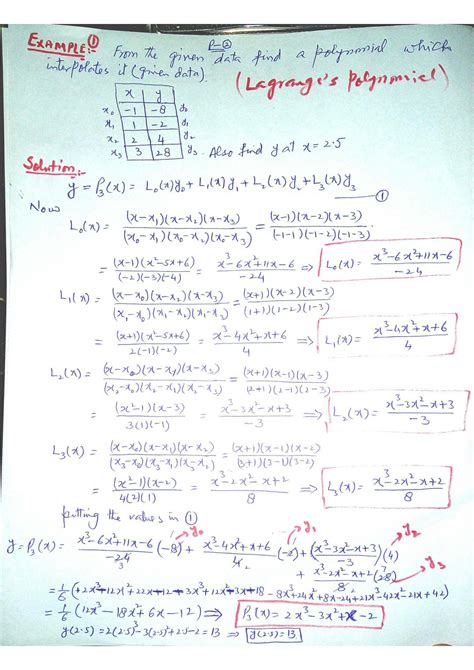 P-②
EXAMPLE:① From the given data find a polynomial which
interpolates it (given data). (Lagrange's Polynomial)
x y
x₀ -1 -8 y₀
x₁ 1 -2 y₁
x₂ 2 4 y₂
x₃ 3 28 y₃ . Also find y at x = 2.5
Solution:-
y = P₃(x) = L₀(x)y₀ + L₁(x)y₁ + L₂(x)y₂ + L₃(x)y₃ —①
Now
L₀(x) = (x-x₁)(x-x₂)(x-x₃) / (x₀-x₁)(x₀-x₂)(x₀-x₃) = (x-1)(x-2)(x-3) / (-1-1)(-1-2)(-1-3)
= (x-1)(x²-5x+6) / (-2)(-3)(-4) = x³-6x²+11x-6 / -24 ⇒ L₀(x) = x³-6x²+11x-6 / -24
L₁(x) = (x-x₀)(x-x₂)(x-x₃) / (x₁-x₀)(x₁-x₂)(x₁-x₃) = (x+1)(x-2)(x-3) / (1+1)(1-2)(1-3)
= (x+1)(x²-5x+6) / 2(-1)(-2) = x³-4x²+x+6 / 4 ⇒ L₁(x) = x³-4x²+x+6 / 4
L₂(x) = (x-x₀)(x-x₁)(x-x₃) / (x₂-x₀)(x₂-x₁)(x₂-x₃) = (x+1)(x-1)(x-3) / (2+1)(2-1)(2-3)
= (x²-1)(x-3) / 3(1)(-1) = x³-3x²-x+3 / -3 ⇒ L₂(x) = x³-3x²-x+3 / -3
L₃(x) = (x-x₀)(x-x₁)(x-x₂) / (x₃-x₀)(x₃-x₁)(x₃-x₂) = (x+1)(x-1)(x-2) / (3+1)(3-1)(3-2)
= (x²-1)(x-2) / 4(2)(1) = x³-2x²-x+2 / 8 ⇒ L₃(x) = x³-2x²-x+2 / 8
putting the values in ①
y₀ y₁ y₂
y = P₃(x) = x³-6x²+11x-6 / -24 (-8) + x³-4x²+x+6 / 4 (-2) + (x³-3x²-x+3) / -3 (4)
+ x³-2x²-x+2 / 8 (28) y₃
= 1/6 (+2x³-12x²+22x-12-3x³+12x²-3x-18-8x³+24x²+8x-24+21x³-42x²-21x+42)
= 1/6 (12x³-18x²+6x-12) ⇒ P₃(x) = 2x³-3x²+x-2
y(2.5) = 2(2.5)³-3(2.5)²+2.5-2 = 13 ⇒ y(2.5) = 13